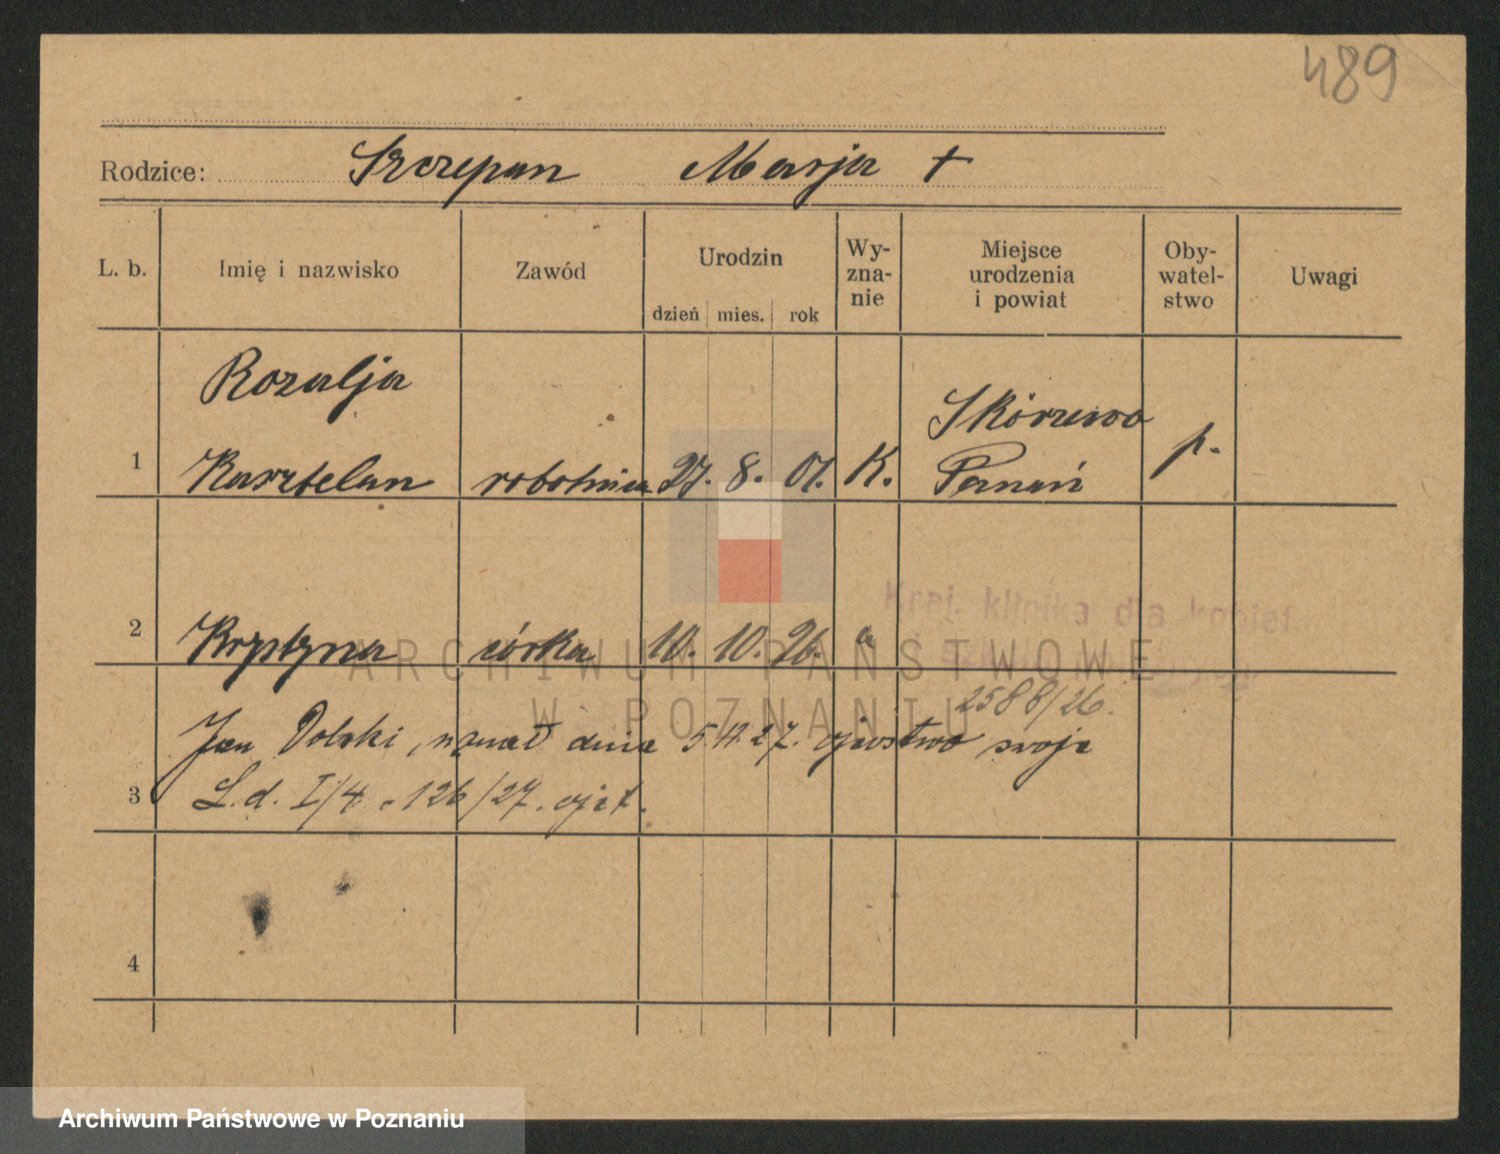 489
Rodzice: Szczepan Marja +
L. b. Imię i nazwisko Zawód Urodzin Wy- Miejsce Oby-
zna- urodzenia watel- Uwagi
dzień mies. rok nie i powiat stwo
Rozalja Skórzewo
1 Kasztelan robotnica 27. 8. 01. K. Poznań p.
Kraj. klinika dla kobiet
2 Krystyna córka 10. 10. 26.
ARCHIWUM PAŃSTWOWE
W POZNANIU
2588/26.
Jan Polski, uznał dnia 5.11.27. ojcostwo swoje
3 L.d. I/4. 126/27. ojct.
4
Archiwum Państwowe w Poznaniu